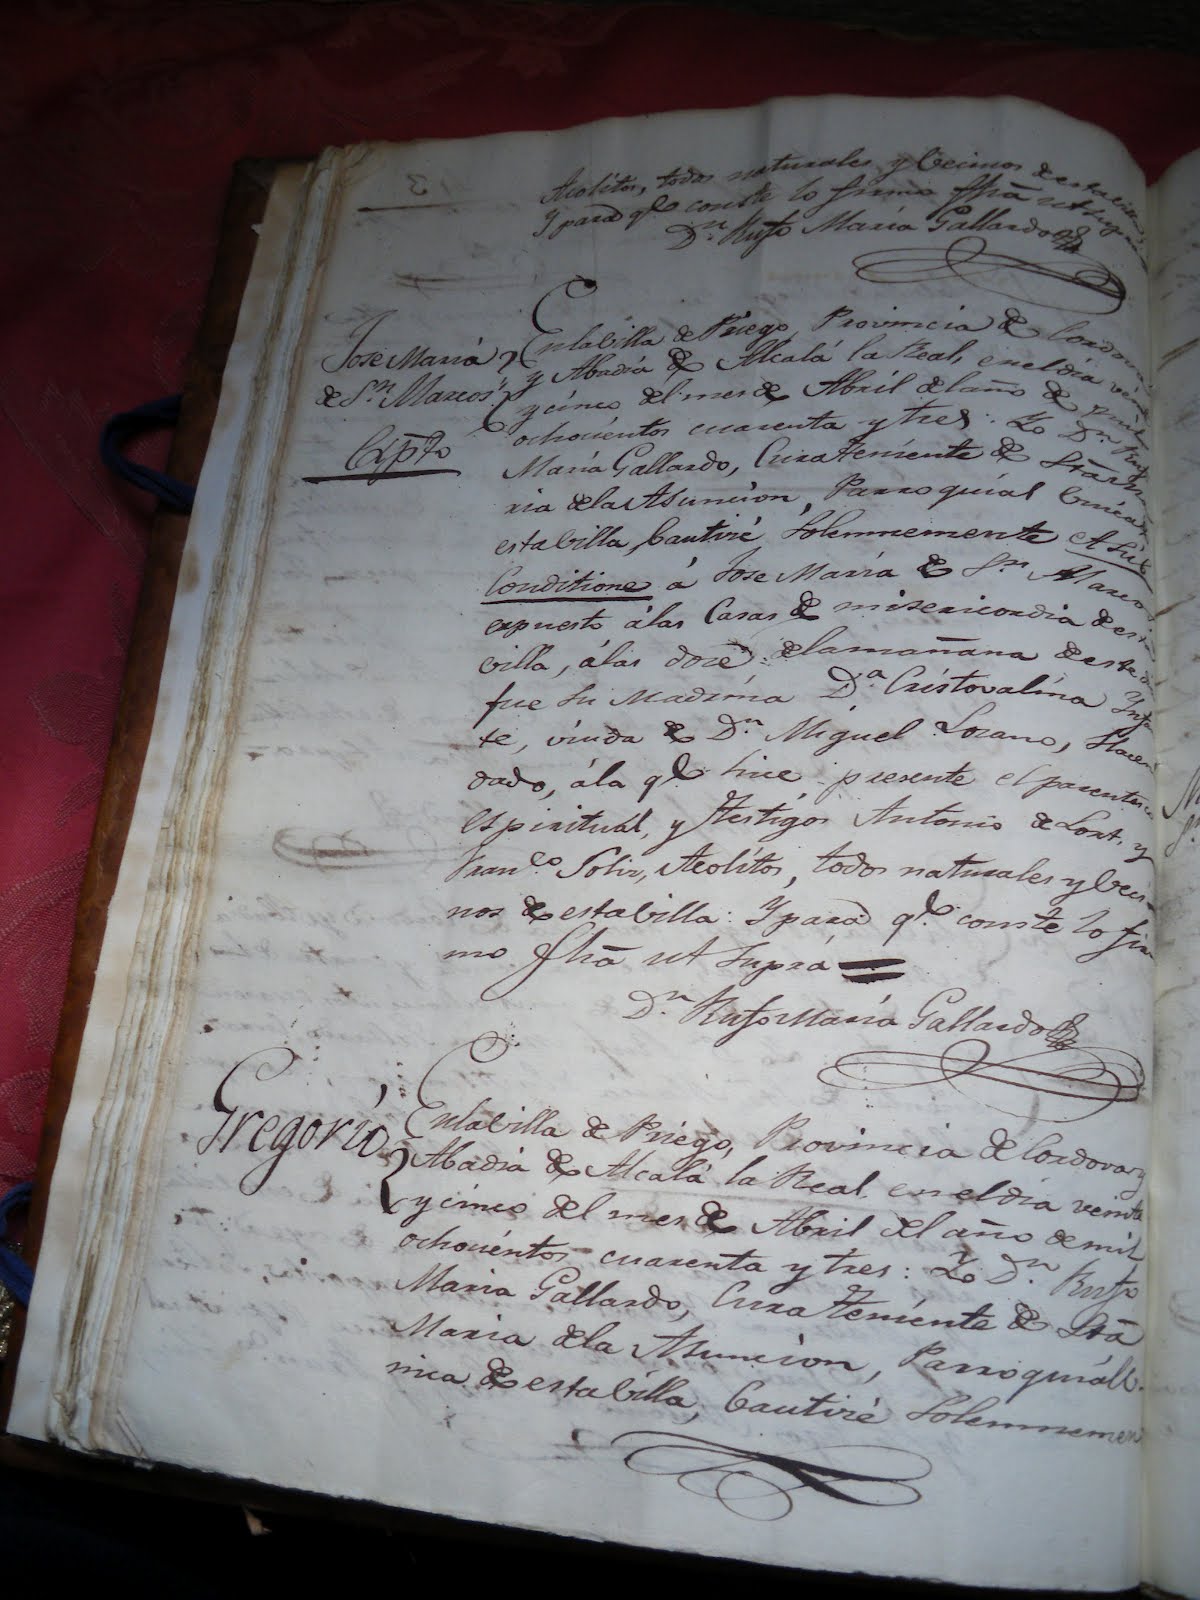 Acolitos, todos naturales y becinos de esta villa
Y para qe. conste lo firmo fhã ut supra
Dn. Rufo María Gallardo
Jose María
de Sn. Marcos
Expto
En la villa de Priego, Provincia de Cordova
y Abadía de Alcalá la Real, en el día veinte
y cinco del mes de Abril del año de mil
ochocientos cuarenta y tres: Yo Dn. Rufo
María Gallardo, Cura teniente de Stã Ma
ria de la Asuncion, Parroquial Unica de
esta villa, bautizé Solemnemente et Sub
Conditione á Jose María de Sn. Marcos
expuesto á las Casas de misericordia de esta
villa, á las doze de la mañana de este dia
fue su Madrina Da. Cristovalina Ynfan
te, viuda de Dn. Miguel Lozano, Hacen
dado, á la qe. hice presente el parentesco
Espiritual, y testigos Antonio de y
Franco. Solis, Acolitos, todos naturales y beci-
nos de esta villa: Y para qe. conste lo fir
mo fhã ut supra
Dn. Rufo María Gallardo
Gregorio
En la villa de Priego, Provincia de Cordova y
Abadia de Alcalá la Real en el día veinte
y cinco del mes de Abril del año de mil
ochocientos cuarenta y tres: Yo Dn. Rufo
Maria Gallardo, Cura teniente de Stã
Maria de la Asuncion, Parroquiál U-
nica de esta villa, bautizé Solemnemen